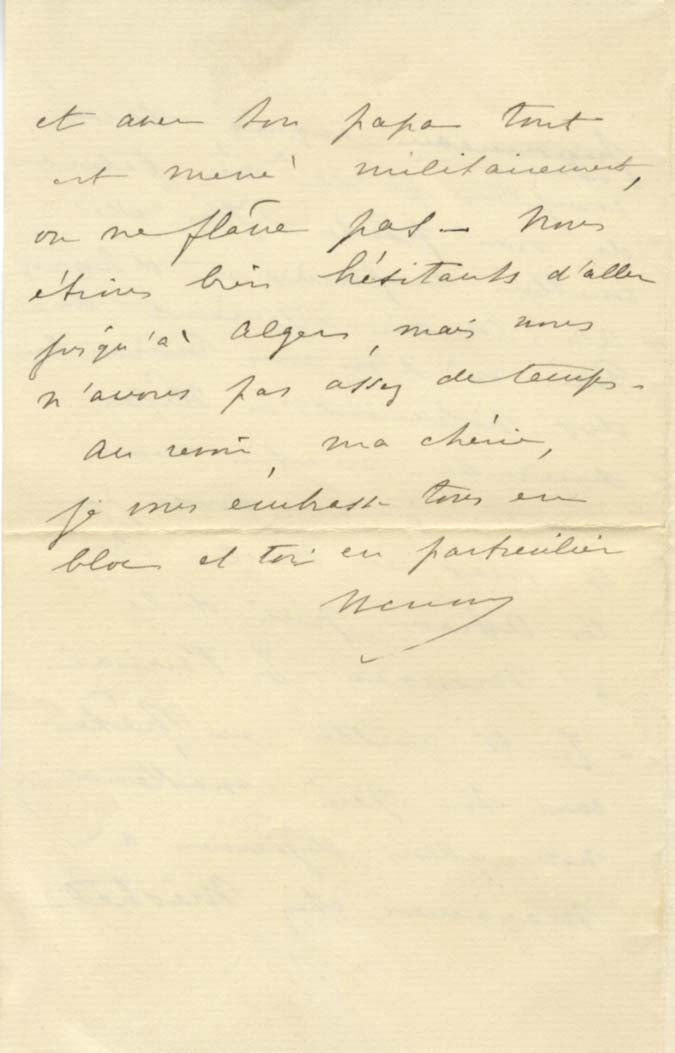 et avec ton papa tout
est mené militairement,
on ne flâne pas — Nous
étions bien hésitants d'aller
jusqu'à Alger, mais nous
n'avons pas assez de temps.
Au revoir, ma chérie,
je vous embrasse tous en
bloc et toi en particulier